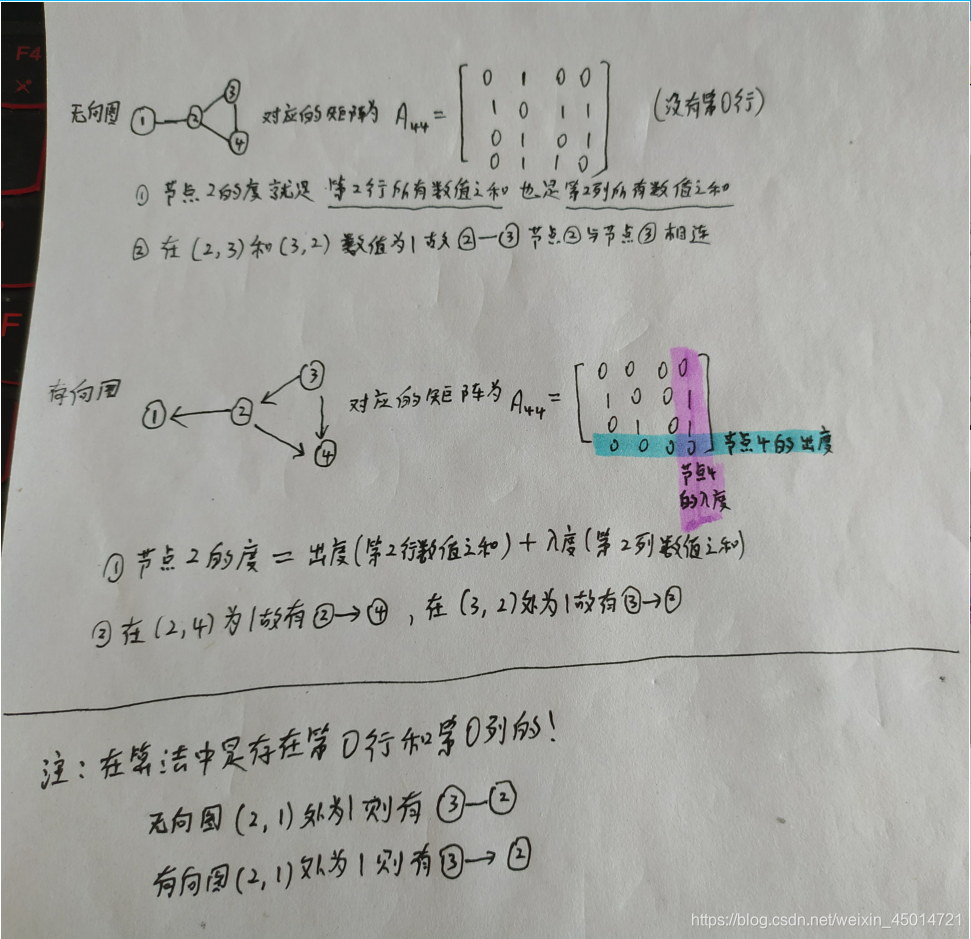 F4
F
无向图 ① — ② ③ ④ 对应的矩阵为 A₄₄ = (没有第0行)
0 1 0 0
1 0 1 1
0 1 0 1
0 1 1 0
① 节点2的度就是 第2行所有数值之和 也是第2列所有数值之和
② 在(2,3)和(3,2)数值为1故 ②—③ 节点②与节点③相连
有向图 ① ② ③ ④ 对应的矩阵为 A₄₄ =
0 0 0 0
1 0 0 1
0 1 0 1
0 0 0 0 节点4的出度
节点4
的入度
① 节点2的度 = 出度(第2行数值之和) + 入度(第2列数值之和)
② 在(2,4)为1故有②→④ , 在(3,2)处为1故有③→②
注: 在算法中是存在第0行和第0列的!
无向图(2,1)处为1则有 ③—②
有向图(2,1)处为1则有③→②
https://blog.csdn.net/weixin_45014721